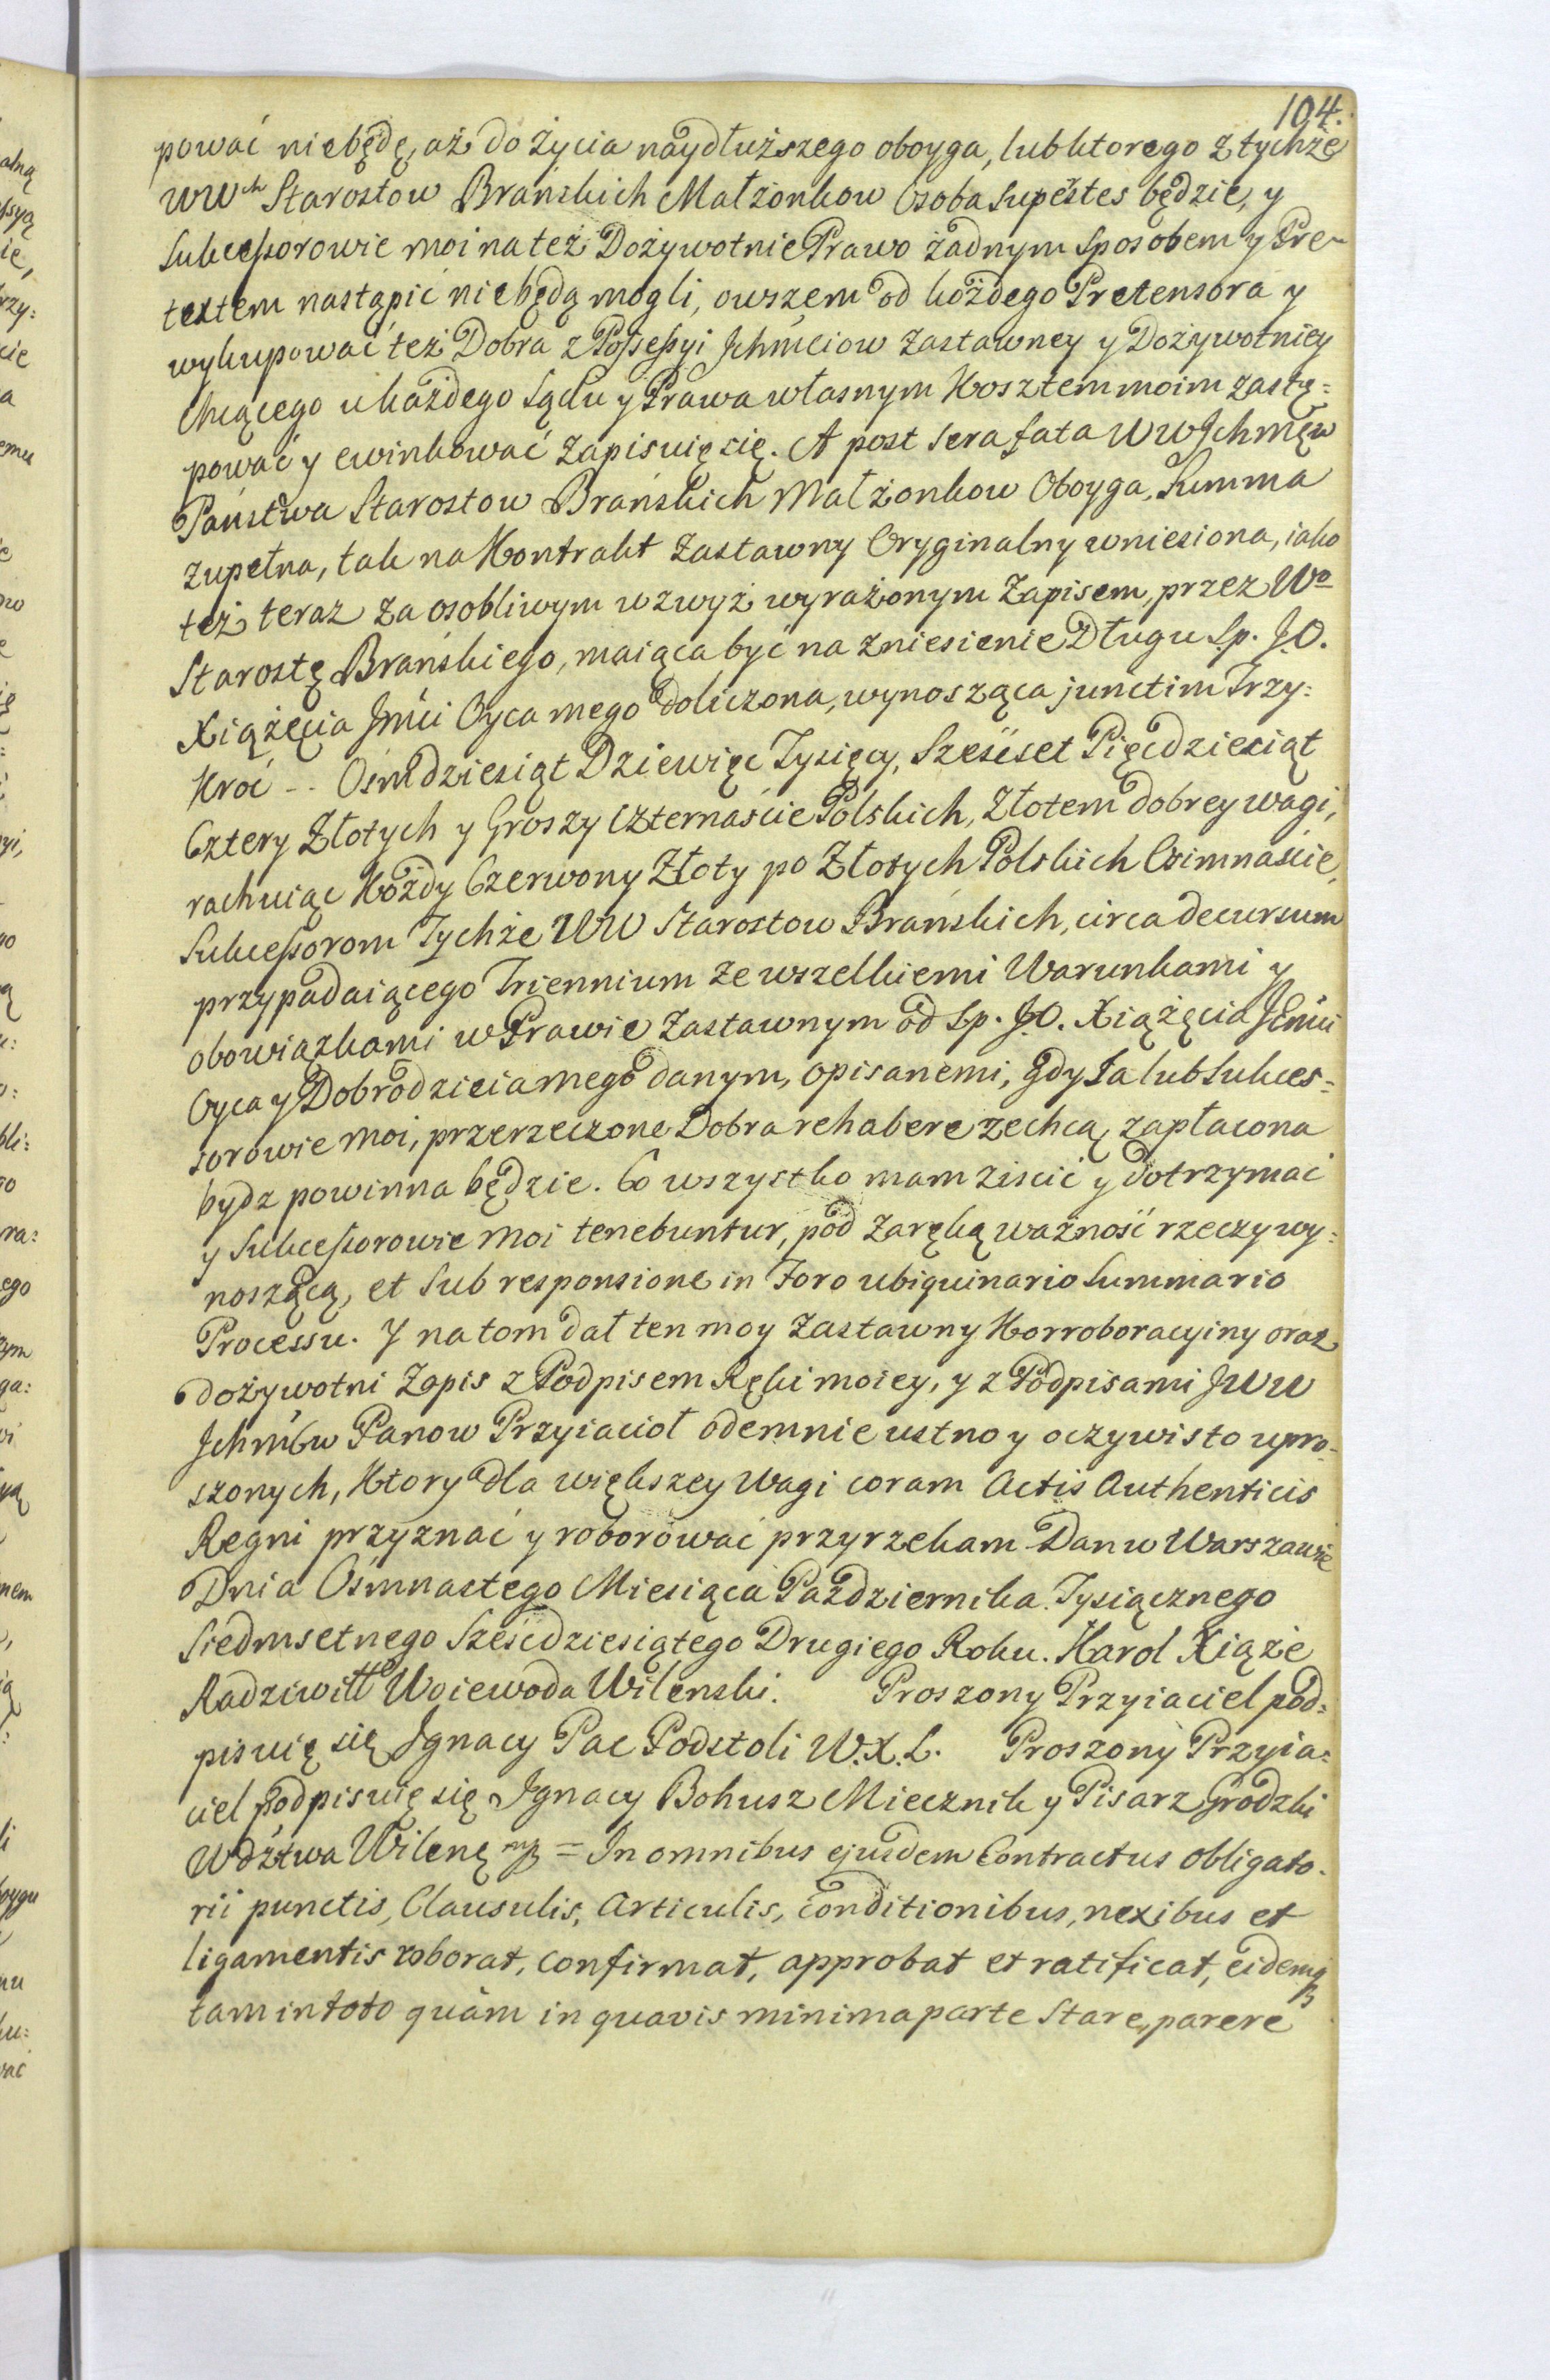 104.
pować niebędę, aż do życia naydłuższego oboyga, lub ktorego z tychże
WWch Starostow Brańskich Małżonkow Osoba Supestes będzie, y
Sukcessorowie moi na też Dożywotnie Prawo żadnym sposobem y Pre-
textem nastąpić niebędą mogli, owszem od każdego Pretensora y
wykupować też Dobra z Possessyi Ichmciow Zastawney y Dożywotniey
chcącego u każdego Sądu y Prawa własnym Kosztem moim zastę=
pować y ewinkować Zapisuię się. A post sera fata WW Ichmęw
Państwa Starostow Brańskich Małżonkow Oboyga, Summa
zupełna, tak na Kontrakt Zastawny Oryginalny wniesiona, iako
też teraz za osobliwym wzwyż wyrażonym Zapisem, przez Wo
Starostę Brańskiego, maiąca być na zniesienie Długu Sp. J.O.
Xiążęcia Jmci Oyca mego doliczona, wynosząca junctim Trzy=
Kroć -- Ośmdziesiąt Dziewięć Tysięcy, Sześćset Pięćdziesiąt
Cztery Złotych y Groszy Czternaście Polskich, Złotem dobrey wagi,
rachuiąc Każdy Czerwony Złoty po Złotych Polskich Ośimnaście,
Sukcessorom Tychże WW Starostow Brańskich, circa decursum
przypadaiącego Triennium ze wszelkiemi Warunkami y
obowiązkami w Prawie Zastawnym od Sp. J.O. Xiążęcia Jmci
Oyca y Dobrodzieia mego danym, opisanemi, gdy Ia lub Sukces=
sorowie moi, przerzeczone Dobra rehabere zechcą, zapłacona
bydz powinna będzie. Co wszystko mam ziscić y dotrzymać
y Sukcessorowie moi tenebuntur, pod zaręką ważność rzeczy wy=
noszącą, et sub responsione in Foro ubiquinario Summario
Processu. Y na tom dał ten moy Zastawny Korroboracyiny oraz
dożywotni Zapis z Podpisem Ręki moiey, y z Podpisami JWW
Ichmćw Panow Przyiacioł odemnie ustno y oczywisto upro-
szonych, Ktory dla większey Wagi coram Actis Authenticis
Regni przyznać y roborować przyrzekam Dan w Warszawie
Dnia Ośmnastego Miesiąca Pazdziernika Tysiącznego
Siedmsetnego Sześćdziesiątego Drugiego Roku. Karol Xiąże
Radziwiłł Woiewoda Wilenski. Proszony Przyiaciel pod=
pisuię się Ignacy Pac Podstoli W.X.L. Proszony Przyia=
ciel podpisuię się Ignacy Bohusz Miecznik y Pisarz Grodzki
Wdztwa Wileng mp = In omnibus ejusdem Contractus obligato-
rii punctis, Clausulis, Articulis, conditionibus, nexibus et
ligamentis roborat, confirmat, approbat et ratificat, eidemq
tam in toto quàm in quavis minima parte stare, parere